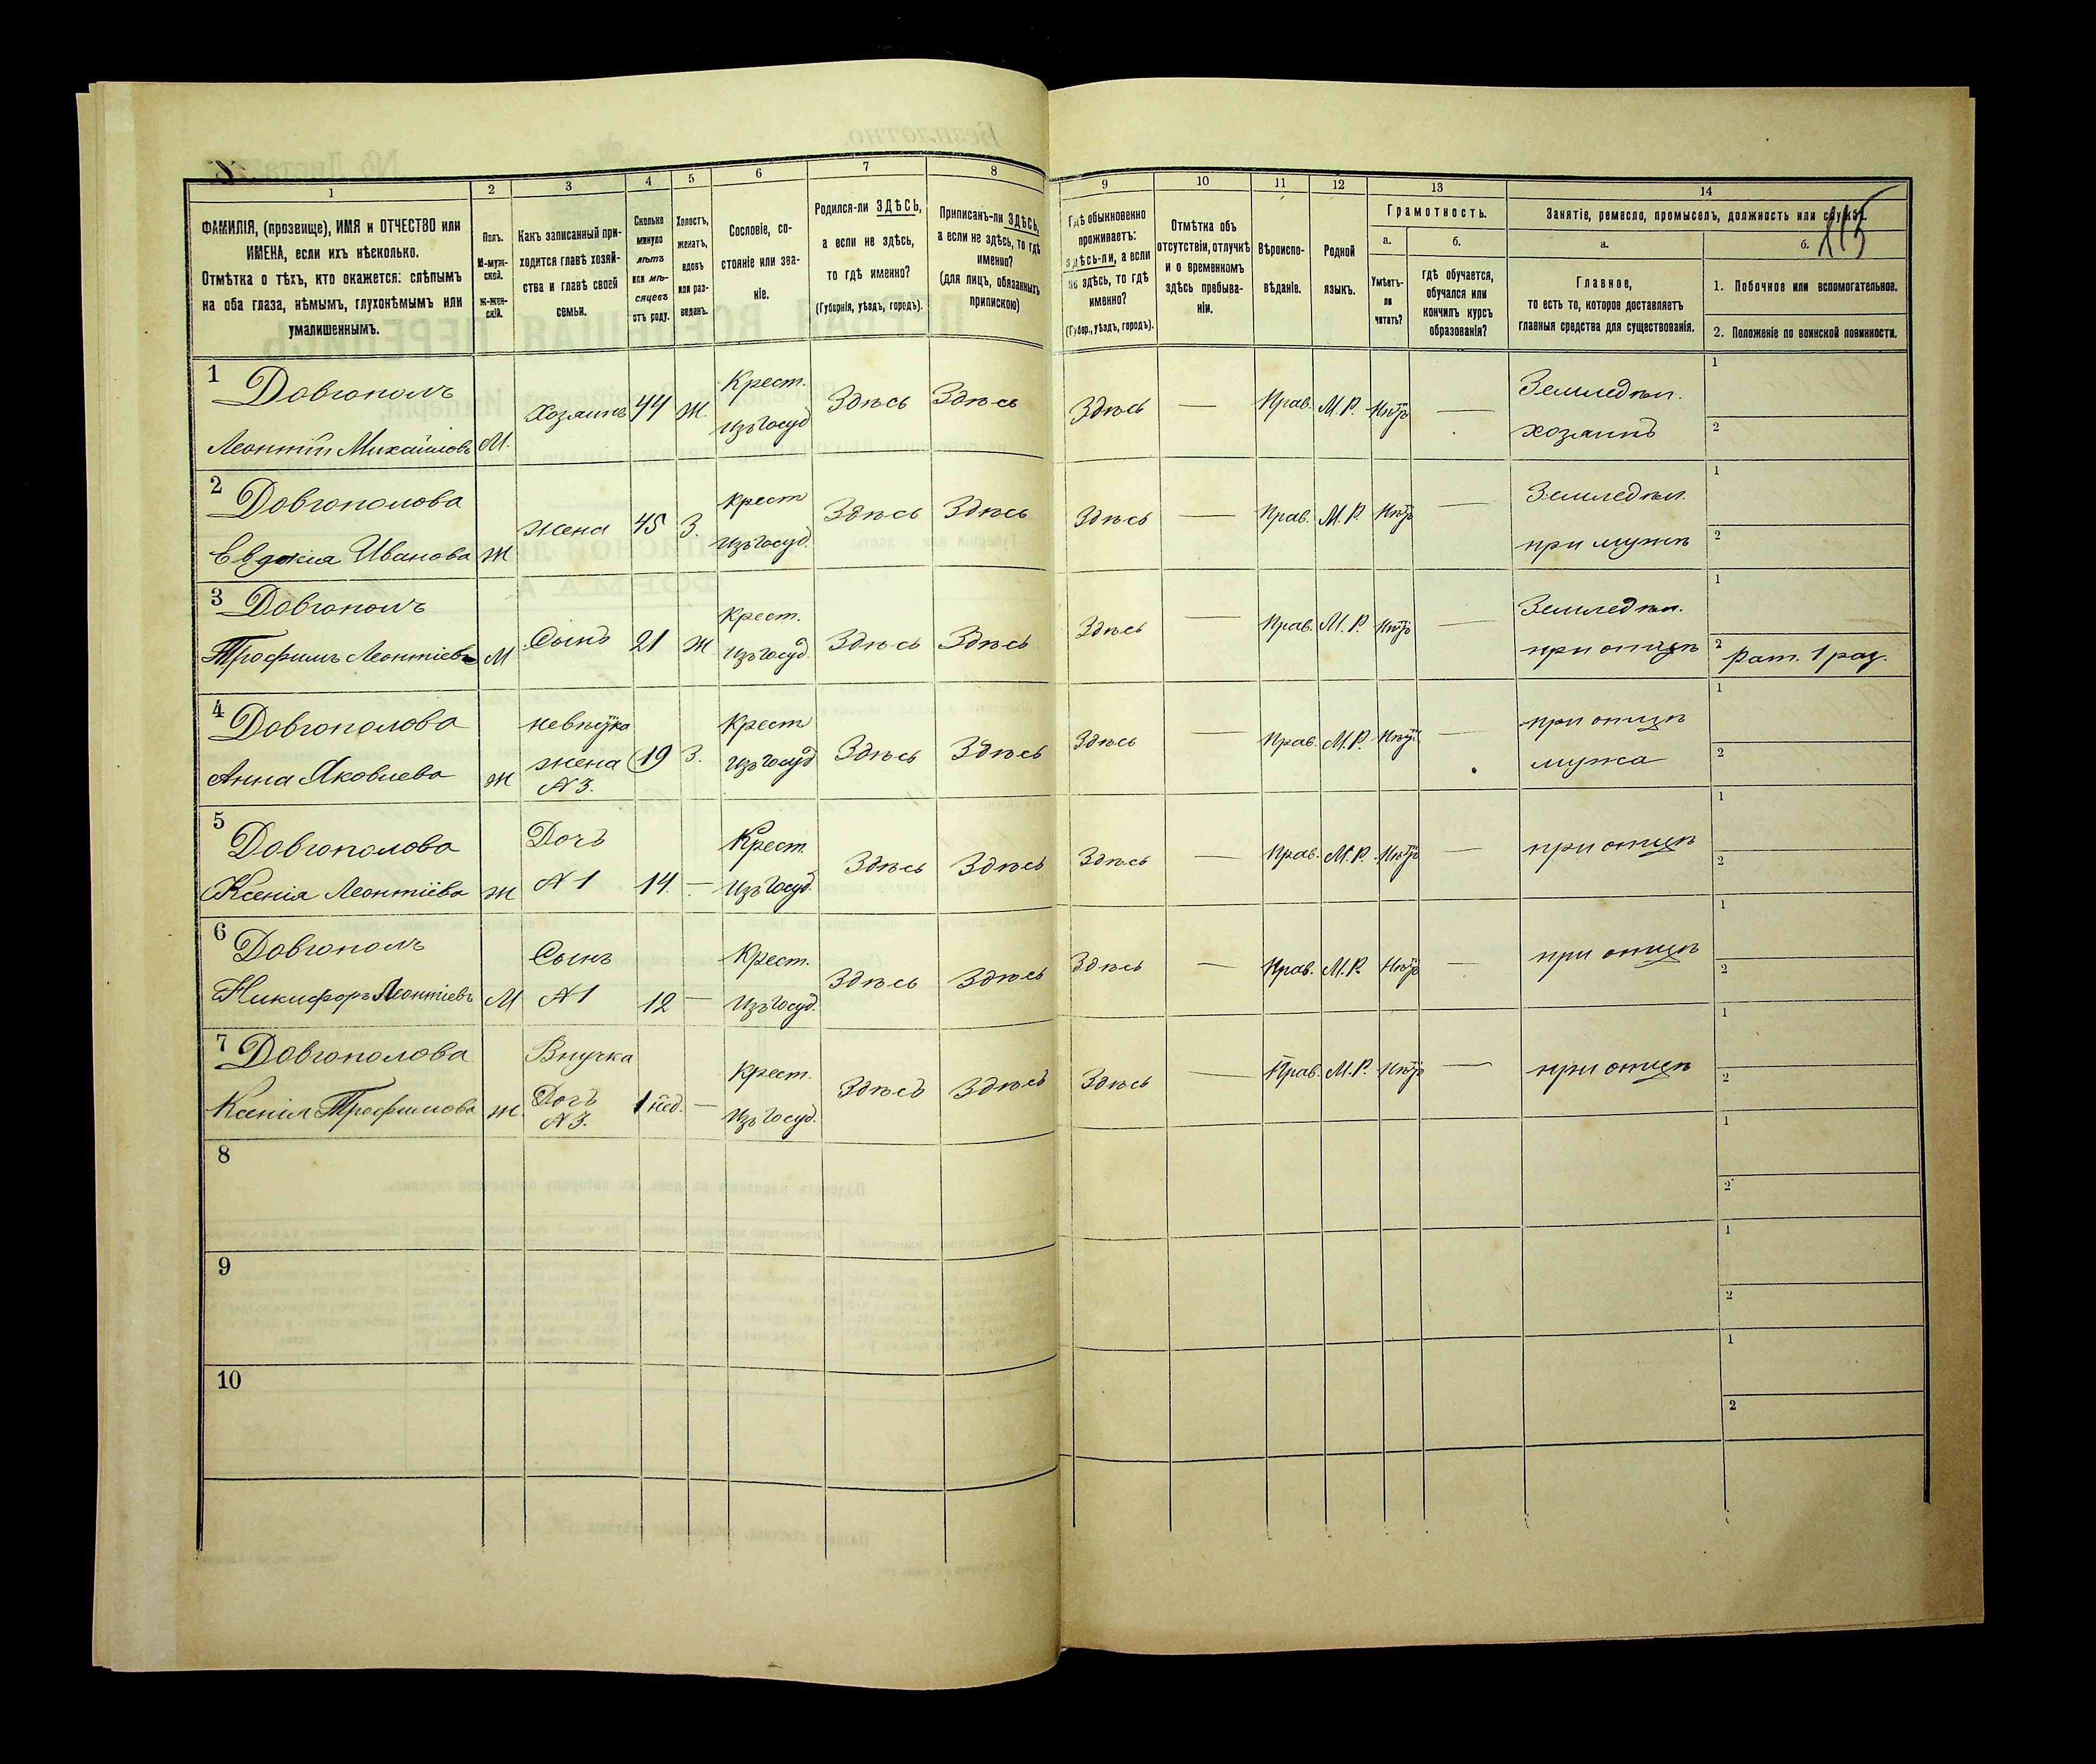 115
1 2 3 4 5 6 7 8 9 10 11 12 13 14
ФАМИЛІЯ, (прозвище), ИМЯ и ОТЧЕСТВО или
ИМЕНА, если ихъ нѣсколько.
Отмѣтка о тѣхъ, кто окажется: слѣпымъ
на оба глаза, нѣмымъ, глухонѣмымъ или
умалишеннымъ.
Полъ.
М-муж-
ской.
Ж-жен-
скій.
Какъ записанный при-
ходится главѣ хозяй-
ства и главѣ своей
семьи.
Сколько
минуло
лѣтъ
или мѣ-
сяцевъ
отъ роду.
Холостъ,
женатъ,
вдовъ
или раз-
веденъ.
Сословіе, со-
стояніе или зва-
ніе.
Родился-ли ЗДѢСЬ,
а если не здѣсь,
то гдѣ именно?
(Губернія, уѣздъ, городъ).
Приписанъ-ли ЗДѢСЬ,
а если не здѣсь, то гдѣ
именно?
(для лицъ, обязанныхъ
припискою)
Гдѣ обыкновенно
проживаетъ:
здѣсь-ли, а если
не здѣсь, то гдѣ
именно?
(Губер., уѣздъ, городъ).
Отмѣтка объ
отсутствіи, отлучкѣ
и о временномъ
здѣсь пребыва-
ніи.
Вѣроиспо-
вѣданіе.
Родной
языкъ.
Грамотность.
а.
Умѣетъ-
ли
читать?
б.
гдѣ обучается,
обучался или
кончилъ курсъ
образованія?
Занятіе, ремесло, промыселъ, должность или служба.
а.
Главное,
то есть то, которое доставляетъ
главныя средства для существованія.
б.
1. Побочное или вспомогательное.
2. Положеніе по воинской повинности.
1 Довгополъ Крест. Земледѣл. 1
Хозаинъ 44 Ж. Здѣсь Здѣсь Здѣсь — Прав. М.Р. Нѣтъ —
Леонтій Михайловъ М. изъ Госуд хозаинъ 2
2 Довгополова Крест Земледѣл. 1
жена 45 З. Здѣсь Здѣсь Здѣсь — Прав. М.Р. Нѣтъ —
Евдокія Иванова Ж изъ Госуд. при мужѣ 2
3 Довгополъ Крест. Земледѣл. 1
Сынъ 21 Ж Здѣсь Здѣсь Здѣсь — Прав. М.Р. Нѣтъ —
Трофимъ Леонтіевъ М изъ Госуд. при отцѣ 2 Рат. 1 раз.
4 Довгополова невѣстка Крест при отцѣ 1
жена 19 З. Здѣсь Здѣсь Здѣсь — Прав. М.Р. Нѣтъ —
Анна Яковлева Ж № 3. изъ Госуд мужа 2
5 Довгополова Дочь Крест. при отцѣ 1
Здѣсь Здѣсь Здѣсь — Прав. М.Р. Нѣтъ —
Ксенія Леонтіева Ж № 1 14. — изъ Госуд. 2
6 Довгополъ Сынъ Крест. при отцѣ 1
Здѣсь Здѣсь Здѣсь — Прав. М.Р. Нѣтъ —
Никифоръ Леонтіевъ М № 1 12 — изъ Госуд. 2
7 Довгополова Внучка Крест. при отцѣ 1
Здѣсь Здѣсь Здѣсь — Прав. М.Р. Нѣтъ —
Ксенія Трофимова Ж. Дочь № 3. 1 нед. — изъ Госуд. 2
8 1
2
9 1
2
10 1
2